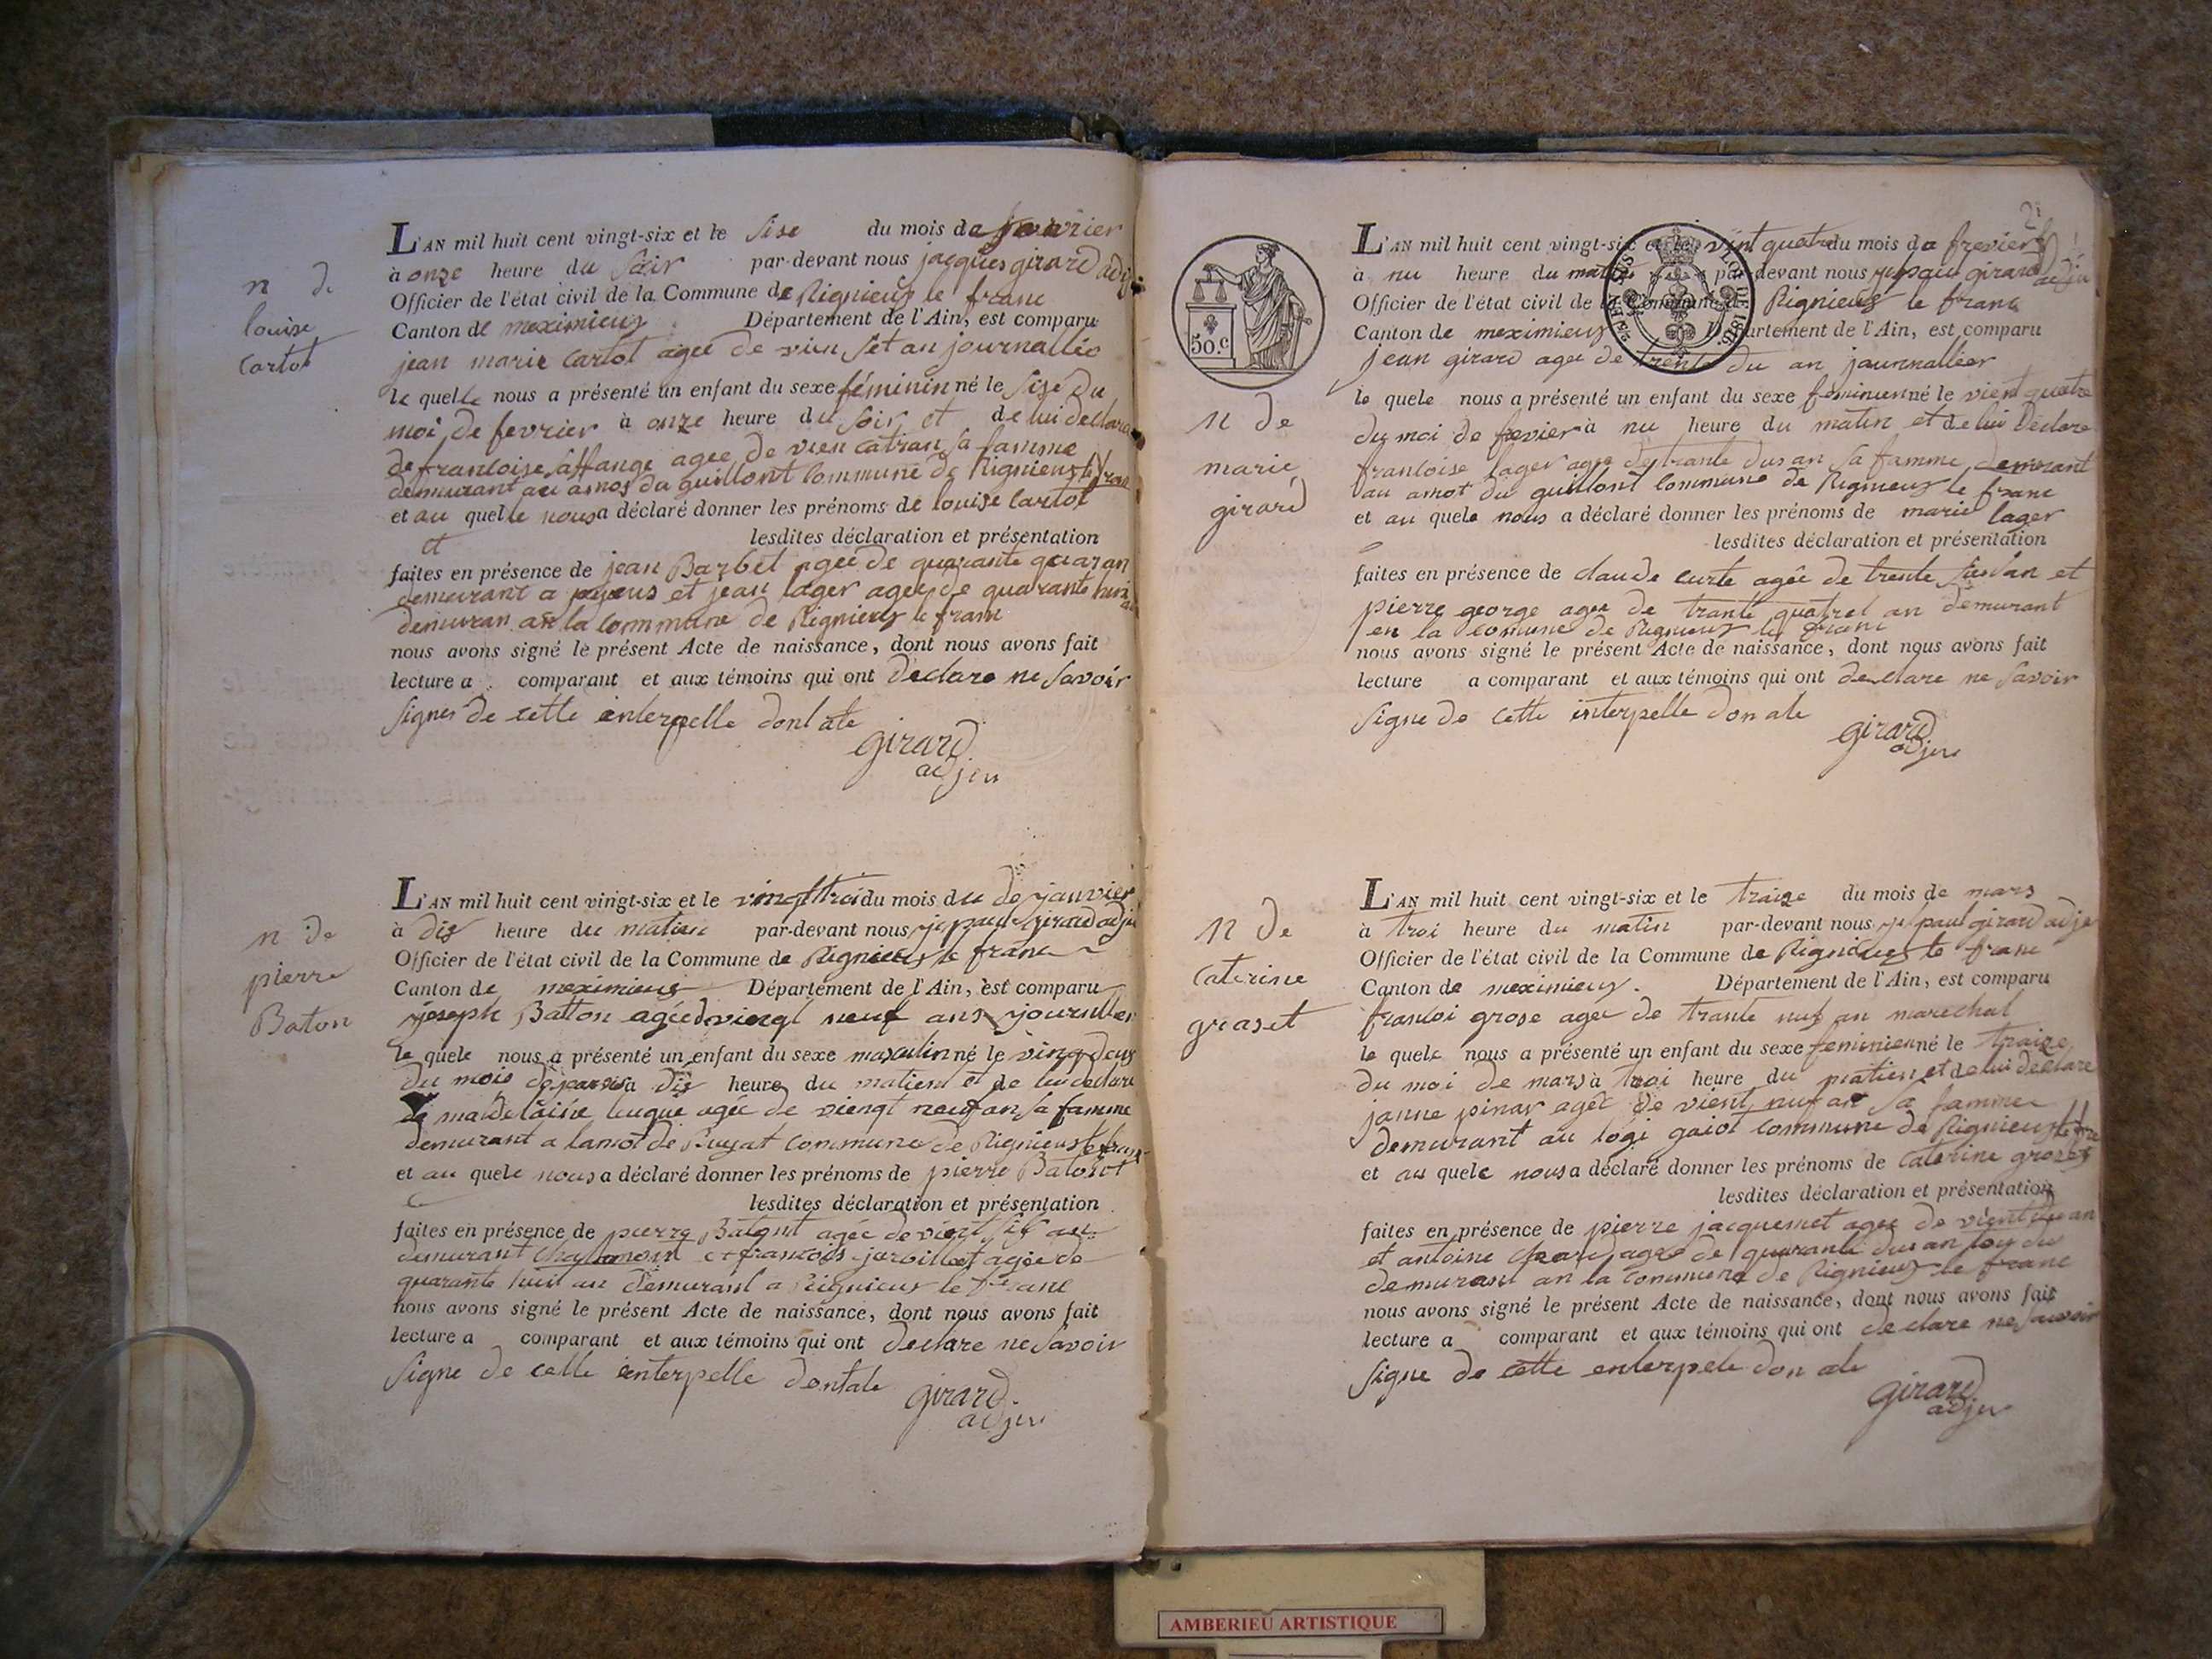 n de
louise
Cartot
L'AN mil huit cent vingt-six et le sise du mois de fevrier
à onze heure du soir par-devant nous jacques girard adj
Officier de l'état civil de la Commune de Rignieux le franc
Canton de meximieux Département de l'Ain, est comparu
jean marie Cartot agee de vien set an journallié
le quelle nous a présenté un enfant du sexe féminin né le sise du
moi de fevrier à onze heure du soir et de lui declara
de francoise agee de vien catran sa famme
demurant au amos du guillont Commune de Rignieux le fran
et au quelle nous a déclaré donner les prénoms de louise Cartot
et lesdites déclaration et présentation
faites en présence de jean Barbet agee de quarante quar an
demeurant a et jean lager agee de quarante huit
demuran an la Commune de Rignieux le franc
nous avons signé le présent Acte de naissance, dont nous avons fait
lecture a comparant et aux témoins qui ont declare ne savoir
signer de cette enterpelle dont ate
girard
adjeu
n de
pierre
Baton
L'AN mil huit cent vingt-six et le vingt troi du mois du de janvier
à dix heure du matien par-devant nous girard adj
Officier de l'état civil de la Commune de Rignieux le franc
Canton de meximieux Département de l'Ain, est comparu
joseph Batton agée d viengt neuf ans journllier
le quele nous a présenté un enfant du sexe masculin né le ving deux
du mois de à dix heure du matien et de lui declare
madelaine agée de viengt neuf an sa famme
demurant a lamot de Buyat Commune de Rignieux le franc
et au quele nous a déclaré donner les prénoms de pierre
lesdites déclaration et présentation
faites en présence de pierre agée de viengt
demurant et francois agée de
quarante huit an demurant a Rignieux le franc
nous avons signé le présent Acte de naissance, dont nous avons fait
lecture a comparant et aux témoins qui ont declare ne savoir
signe de celle enterpelle dontale
girard
adjeu
50.c
n de
marie
girard
L'AN mil huit cent vingt-six et le vint quatre du mois de frevier
à nu heure du matin par-devant nous girard adju
Officier de l'état civil de la Commune de Rignieux le franc
Canton de meximieux Département de l'Ain, est comparu
jean girard agee de trente du an journalléer
le quele nous a présenté un enfant du sexe feminien né le vient quatre
du moi de frevier à nu heure du matin et de lui declare
francoise lager agee de trante dus an sa famme demurant
au amot du guillont Commune de Rignieux le franc
et au quele nous a déclaré donner les prénoms de marie lager
lesdites déclaration et présentation
faites en présence de claude curte agée de trente an et
pierre george agee de trante quatre an demurant
en la comune de Rignieux le franc
nous avons signé le présent Acte de naissance, dont nous avons fait
lecture a comparant et aux témoins qui ont declare ne savoir
signe de cette interpelle don ale
girard
adjeu
n de
Caterine
graset
L'AN mil huit cent vingt-six et le traize du mois de mars
à troi heure du matin par-devant nous paul girard adje
Officier de l'état civil de la Commune de Rignieux le franc
Canton de meximieux. Département de l'Ain, est comparu
francoi grose agee de trante nuf an marechal
le quele nous a présenté un enfant du sexe feminien né le traize
du moi de mars à troi heure du matien et de lui declare
janne pinar agée de vient nuf an sa famme
demurant au logi gaiot Commune de Rignieux le fra
et au quele nous a déclaré donner les prénoms de Caterine
lesdites déclaration et présentation
faites en présence de pierre jacquemet agee de vient an
et antoine agee de quarante dus an
demurant an la Commune de Rignieux le franc
nous avons signé le présent Acte de naissance, dont nous avons fait
lecture a comparant et aux témoins qui ont declare ne savoir
signe de cette enterpele don ale
girard
adjeu
AMBERIEU ARTISTIQUE